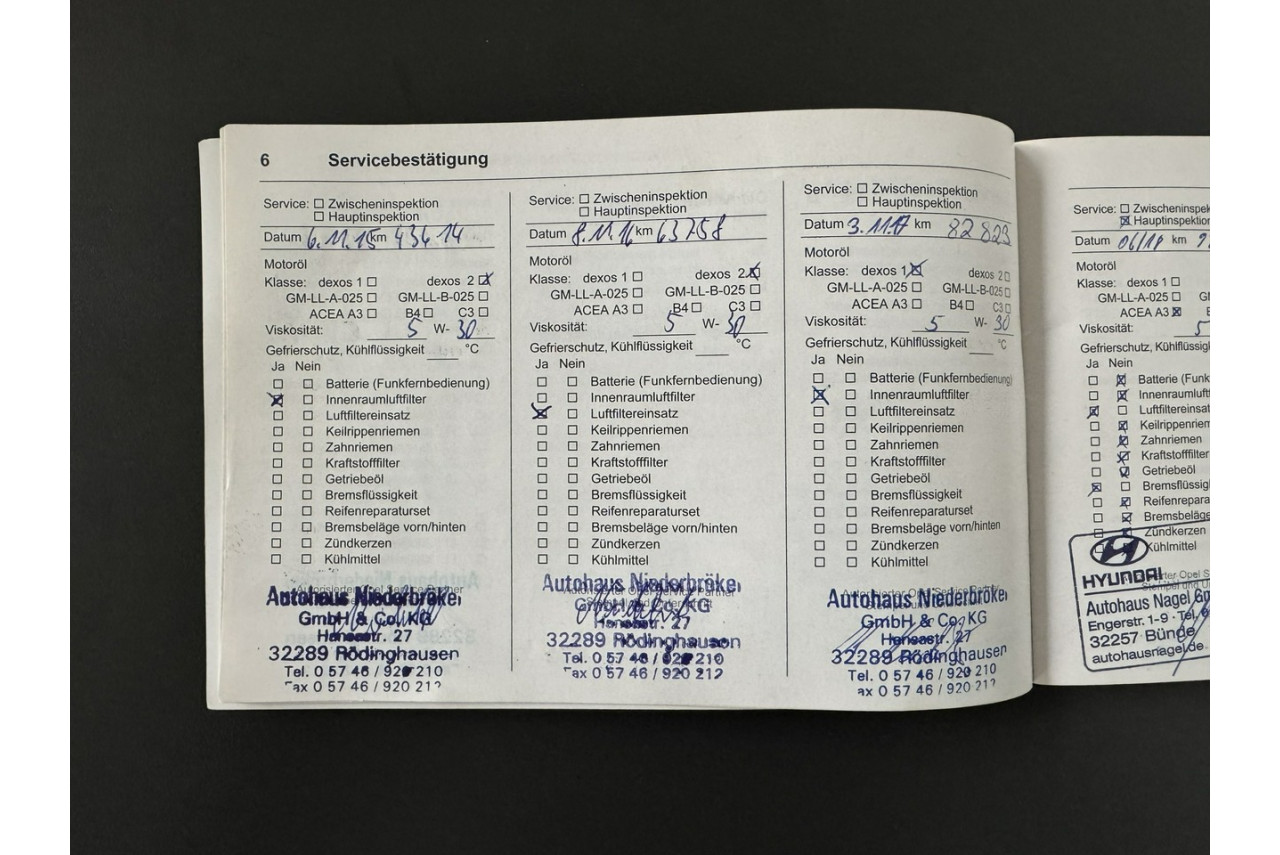 6 Servicebestätigung
Service: ☐ Zwischeninspektion
☐ Hauptinspektion
Datum 6.11.15 km 43614
Motoröl
Klasse: dexos 1 ☐ dexos 2 ☒
GM-LL-A-025 ☐ GM-LL-B-025 ☐
ACEA A3 ☐ B4 ☐ C3 ☐
Viskosität: 5 W- 30
Gefrierschutz, Kühlflüssigkeit ____ °C
Ja Nein
☐ ☐ Batterie (Funkfernbedienung)
☒ ☐ Innenraumluftfilter
☐ ☐ Luftfiltereinsatz
☐ ☐ Keilrippenriemen
☐ ☐ Zahnriemen
☐ ☐ Kraftstofffilter
☐ ☐ Getriebeöl
☐ ☐ Bremsflüssigkeit
☐ ☐ Reifenreparaturset
☐ ☐ Bremsbeläge vorn/hinten
☐ ☐ Zündkerzen
☐ ☐ Kühlmittel
Autohaus Niederbröker
GmbH & Co. KG
Hansastr. 27
32289 Rödinghausen
Tel. 0 57 46 / 920 210
Fax 0 57 46 / 920 212
Service: ☐ Zwischeninspektion
☐ Hauptinspektion
Datum 8.11.16 km 63758
Motoröl
Klasse: dexos 1 ☐ dexos 2 ☒
GM-LL-A-025 ☐ GM-LL-B-025 ☐
ACEA A3 ☐ B4 ☐ C3 ☐
Viskosität: 5 W- 30
Gefrierschutz, Kühlflüssigkeit ____ °C
Ja Nein
☐ ☐ Batterie (Funkfernbedienung)
☐ ☐ Innenraumluftfilter
☒ ☐ Luftfiltereinsatz
☐ ☐ Keilrippenriemen
☐ ☐ Zahnriemen
☐ ☐ Kraftstofffilter
☐ ☐ Getriebeöl
☐ ☐ Bremsflüssigkeit
☐ ☐ Reifenreparaturset
☐ ☐ Bremsbeläge vorn/hinten
☐ ☐ Zündkerzen
☐ ☐ Kühlmittel
Autohaus Niederbröker
GmbH & Co. KG
Hansastr. 27
32289 Rödinghausen
Tel. 0 57 46 / 920 210
Fax 0 57 46 / 920 212
Service: ☐ Zwischeninspektion
☐ Hauptinspektion
Datum 3.11.17 km 82823
Motoröl
Klasse: dexos 1 ☒ dexos 2 ☐
GM-LL-A-025 ☐ GM-LL-B-025 ☐
ACEA A3 ☐ B4 ☐ C3 ☐
Viskosität: 5 W- 30
Gefrierschutz, Kühlflüssigkeit ____ °C
Ja Nein
☐ ☐ Batterie (Funkfernbedienung)
☒ ☐ Innenraumluftfilter
☐ ☐ Luftfiltereinsatz
☐ ☐ Keilrippenriemen
☐ ☐ Zahnriemen
☐ ☐ Kraftstofffilter
☐ ☐ Getriebeöl
☐ ☐ Bremsflüssigkeit
☐ ☐ Reifenreparaturset
☐ ☐ Bremsbeläge vorn/hinten
☐ ☐ Zündkerzen
☐ ☐ Kühlmittel
Autohaus Niederbröker
GmbH & Co. KG
Hansastr. 27
32289 Rödinghausen
Tel. 0 57 46 / 920 210
ax 0 57 46 / 920 212
Service: ☐ Zwischeninspek
☒ Hauptinspektion
Datum 06/18 km 9
Motoröl
Klasse: dexos 1 ☐
GM-LL-A-025 ☐ G
ACEA A3 ☒
Viskosität: 5
Gefrierschutz, Kühlflüssigk
Ja Nein
☐ ☒ Batterie (Funk
☐ ☒ Innenraumluftfilter
☒ ☐ Luftfiltereinsat
☐ ☒ Keilrippenriemen
☐ ☒ Zahnriemen
☐ ☒ Kraftstofffilter
☐ ☒ Getriebeöl
☒ ☐ Bremsflüssig
☐ ☒ Reifenrepara
☐ ☒ Bremsbeläge
Zündkerzen
Kühlmittel
HYUNDAI
Autohaus Nagel Gm
Engerstr. 1-9 · Tel.
32257 Bünde
autohausnagel.de